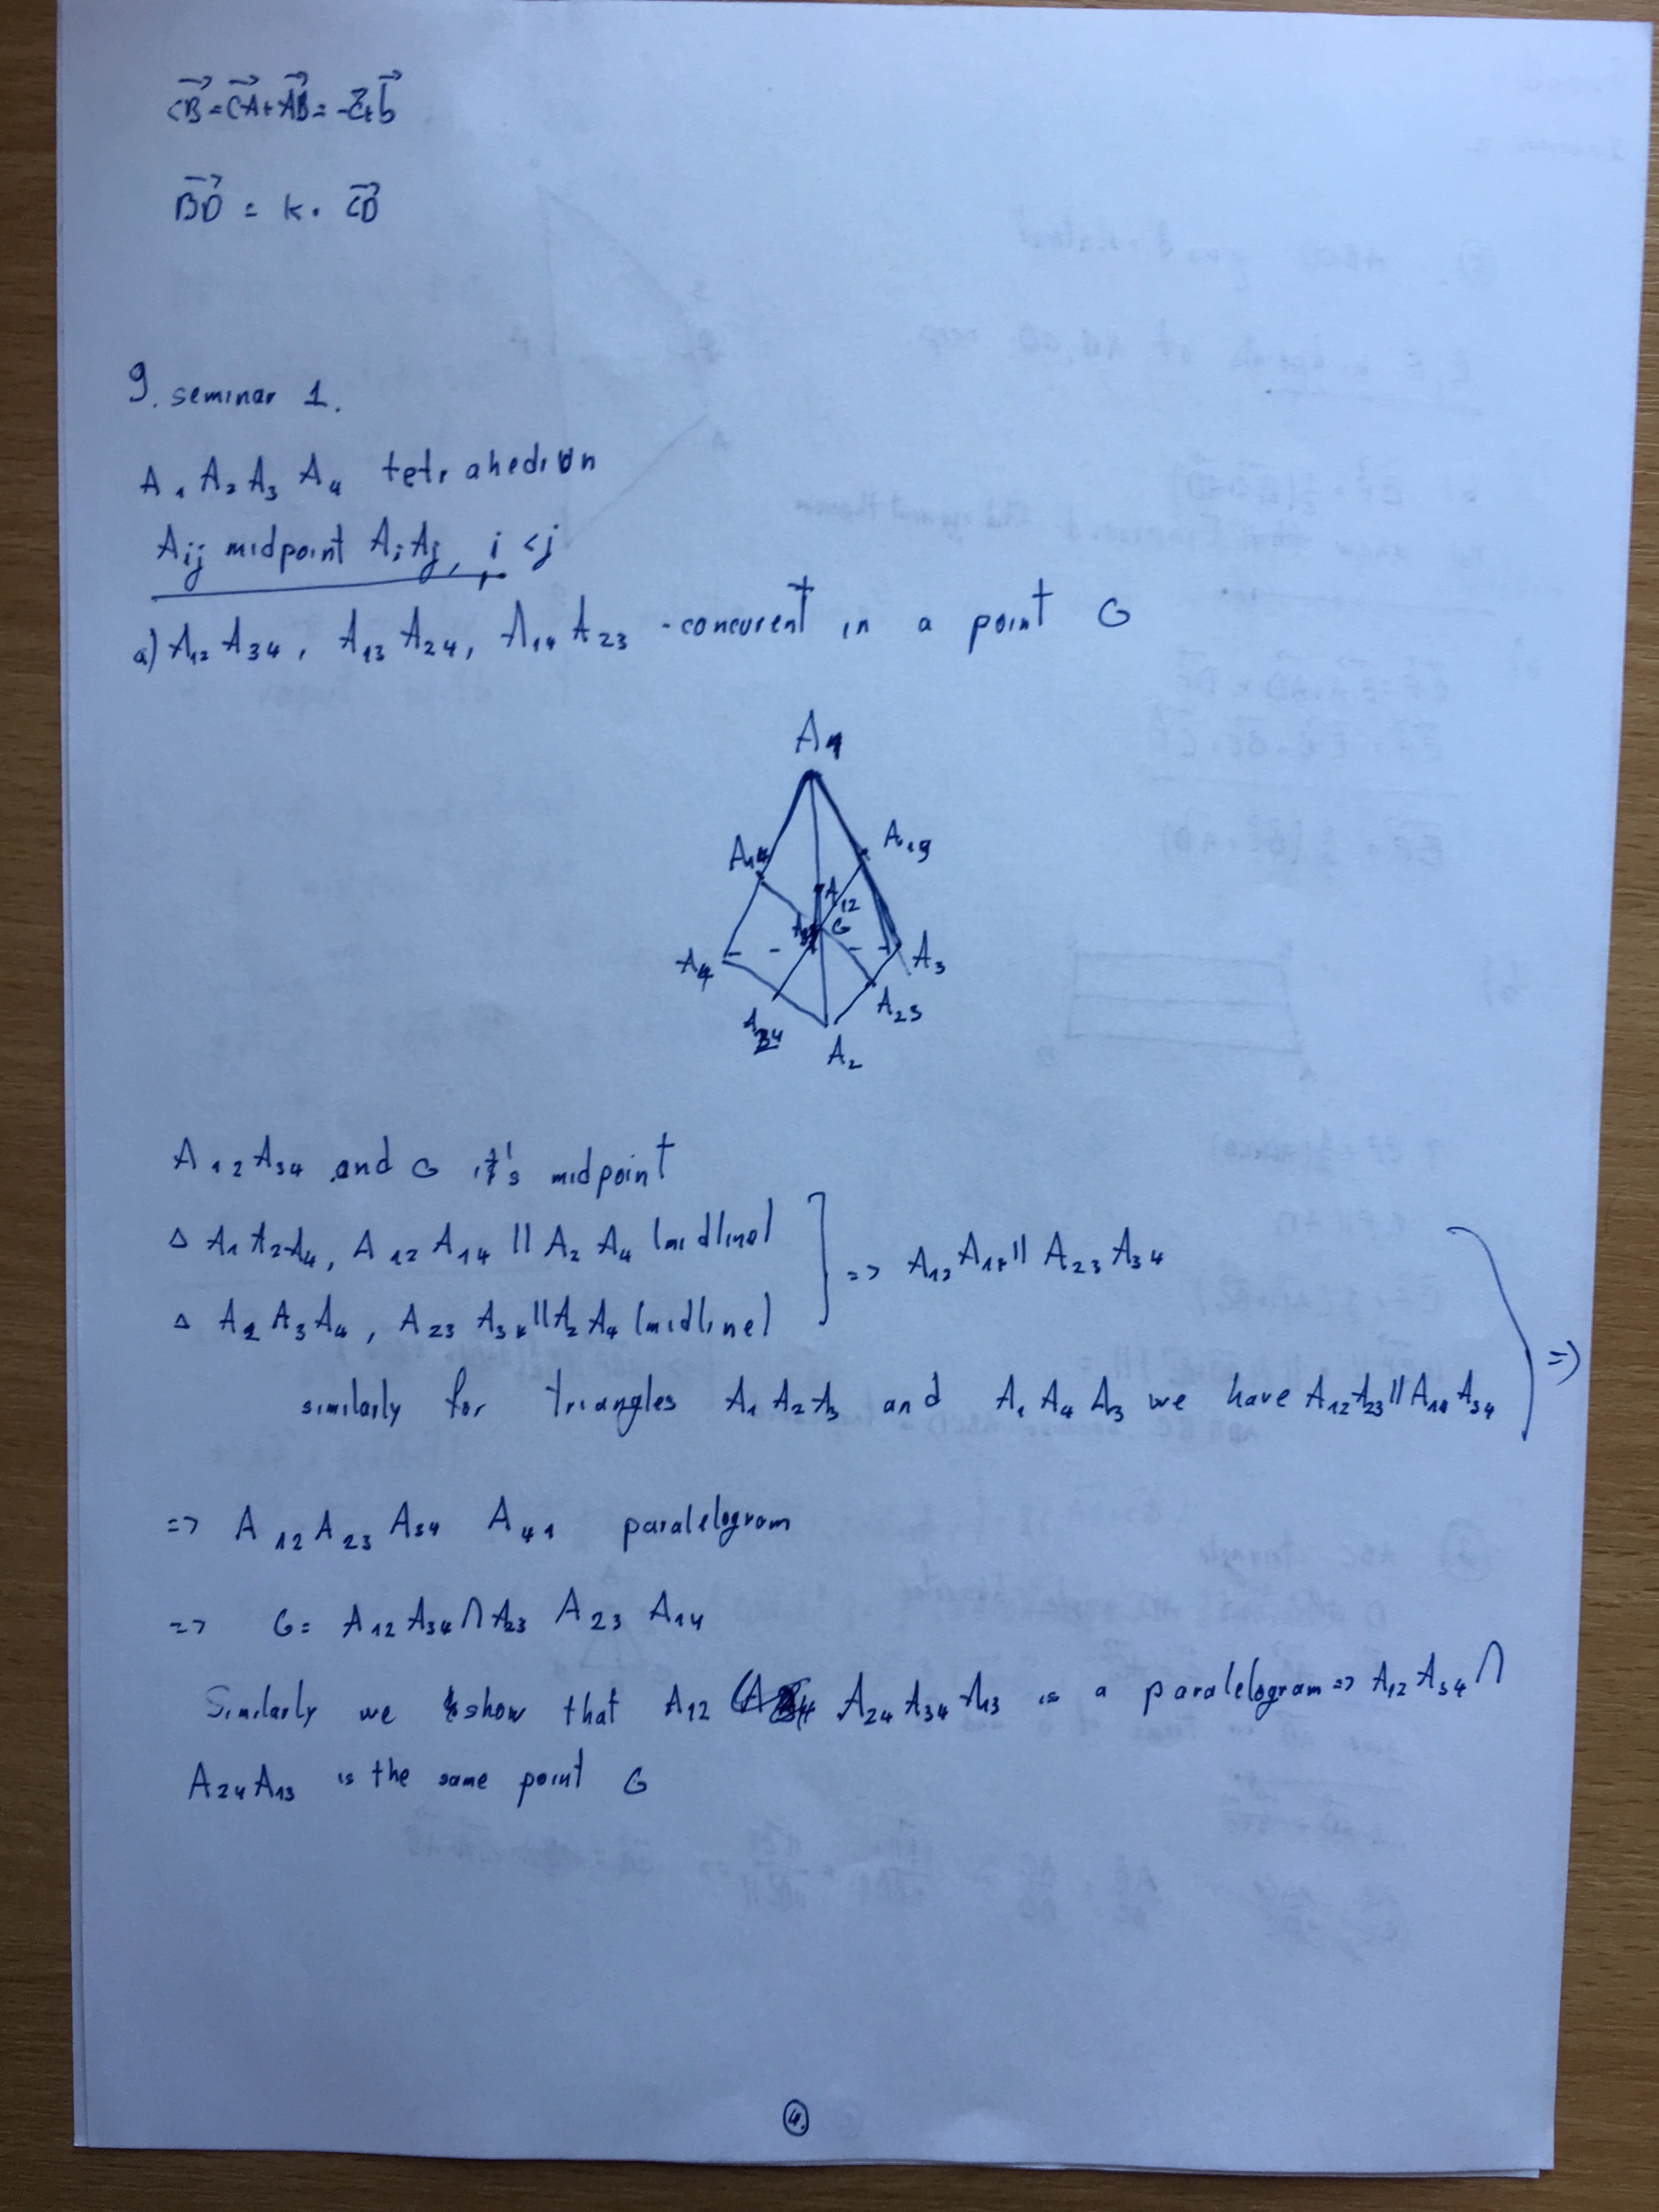 CB = CA + AB = -c + b
BD = k · CD
9. seminar 1.
A1 A2 A3 A4 tetrahedron
Aij midpoint AiAj, i < j
a) A12 A34, A13 A24, A14 A23 - concurent in a point G
A1
A14
A12
G
A4
A3
A23
A34
A2
A12 A34 and G it's midpoint
Δ A1 A2 A4, A12 A14 || A2 A4 (midline)
=> A12 A14 || A23 A34
Δ A2 A3 A4, A23 A34 || A2 A4 (midline)
=>
similarly for triangles A1 A2 A3 and A1 A4 A3 we have A12 A23 || A14 A34
=> A12 A23 A34 A41 paralelogram
=> G = A12 A34 ∩ A23 A23 A14
Similarly we show that A12 A24 A34 A13 is a paralelogram => A12 A34 ∩
A24 A13 is the same point G
4.